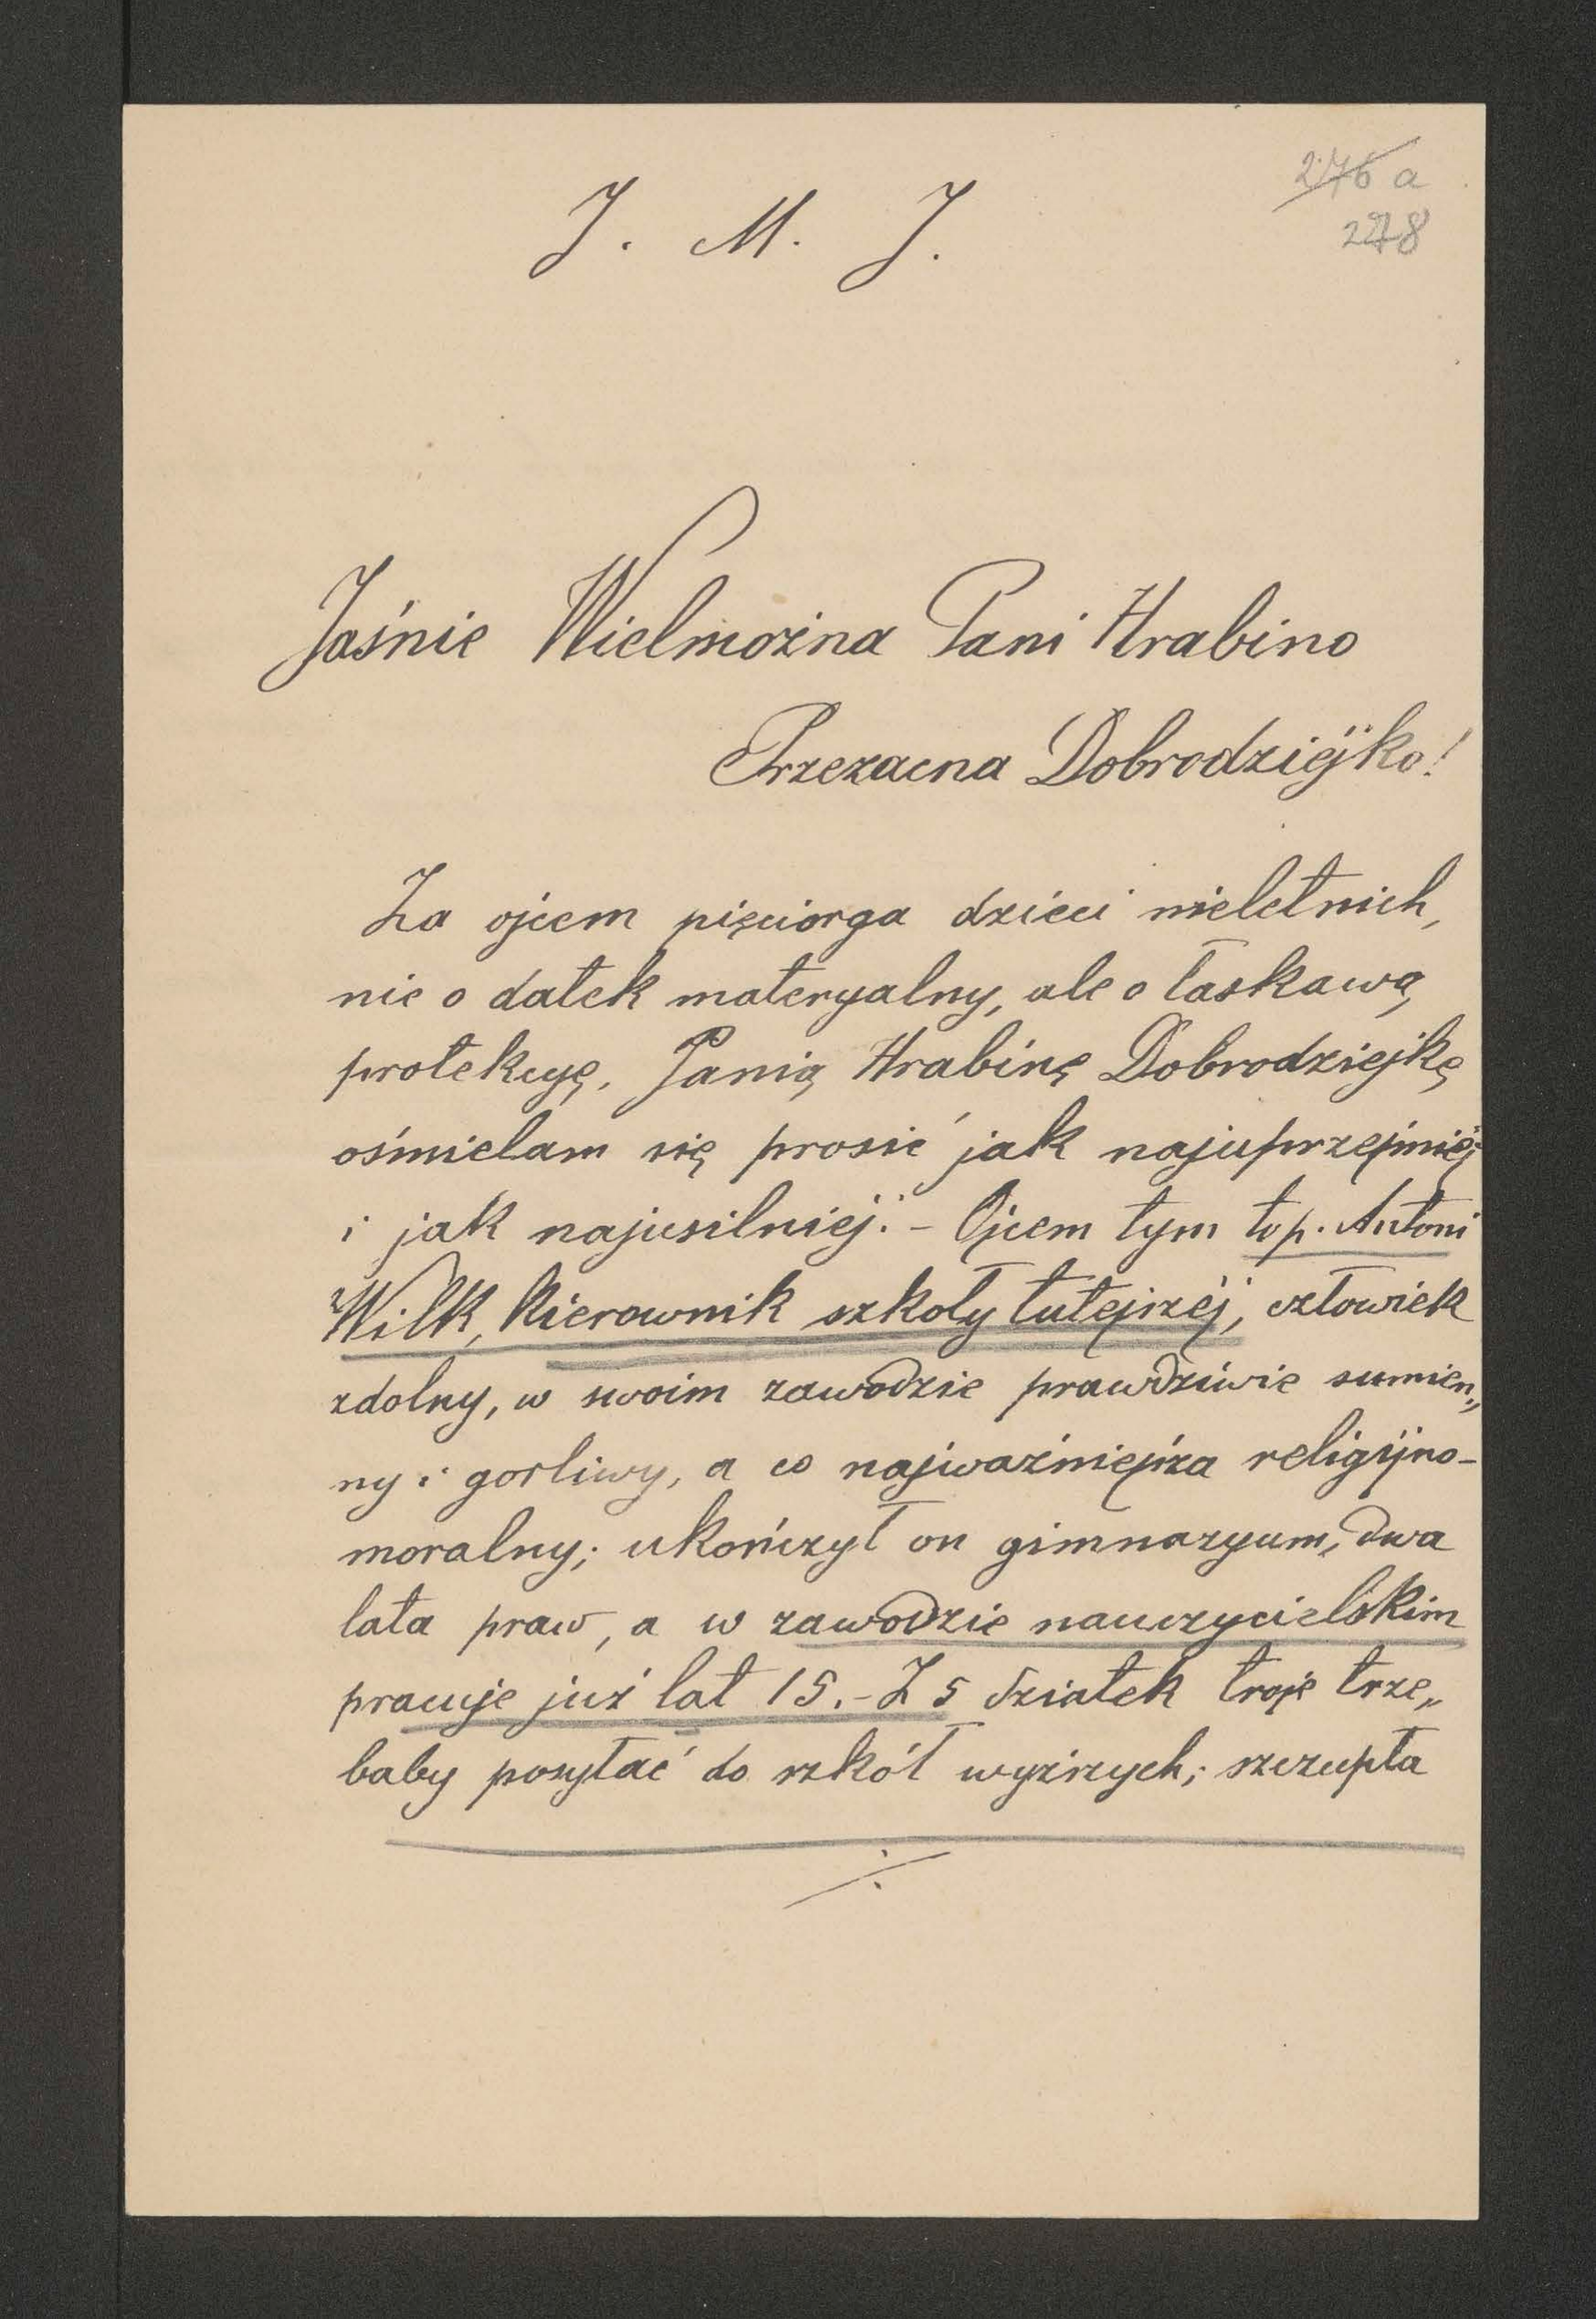 276 a
278
J. M. J.
Jaśnie Wielmożna Pani Hrabino
Przezacna Dobrodziejko!
Za ojcem pięciorga dzieci nieletnich,
nie o datek materyalny, ale o łaskawą
protekcyę, Panią Hrabinę Dobrodziejkę
ośmielam się prosić jak najuprzejmiej
i jak najusilniej. – Ojcem tym to p. Antoni
Wilk, Kierownik szkoły tutejszej, człowiek
zdolny, w swoim zawodzie prawdziwie sumien„
ny i gorliwy, a co najważniejsza religijno-
moralny; ukończył on gimnazyum, dwa
lata praw, a w zawodzie nauczycielskim
pracuje już lat 15. – Z 5 dziatek troje trze„
baby posyłać do szkół wyższych; szczupła
./.